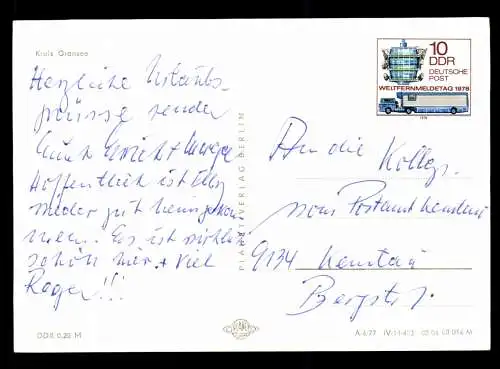 Kreis Gransee
Herzliche Urlaubs-
grüsse senden
Euch Erich +
Hoffentlich ist Elly
wieder gut heimgekom
men. Es ist wirklich
schön hier + viel
Regen!!!
DDR 0,20 M
PLANET-VERLAG BERLIN
PLANET
10
DDR
DEUTSCHE
POST
WELTFERNMELDETAG 1978
An die Kolleg.
vom Postamt
9134
Bergstr.
A 4/77 IV-14-483 02 06 03 014 M